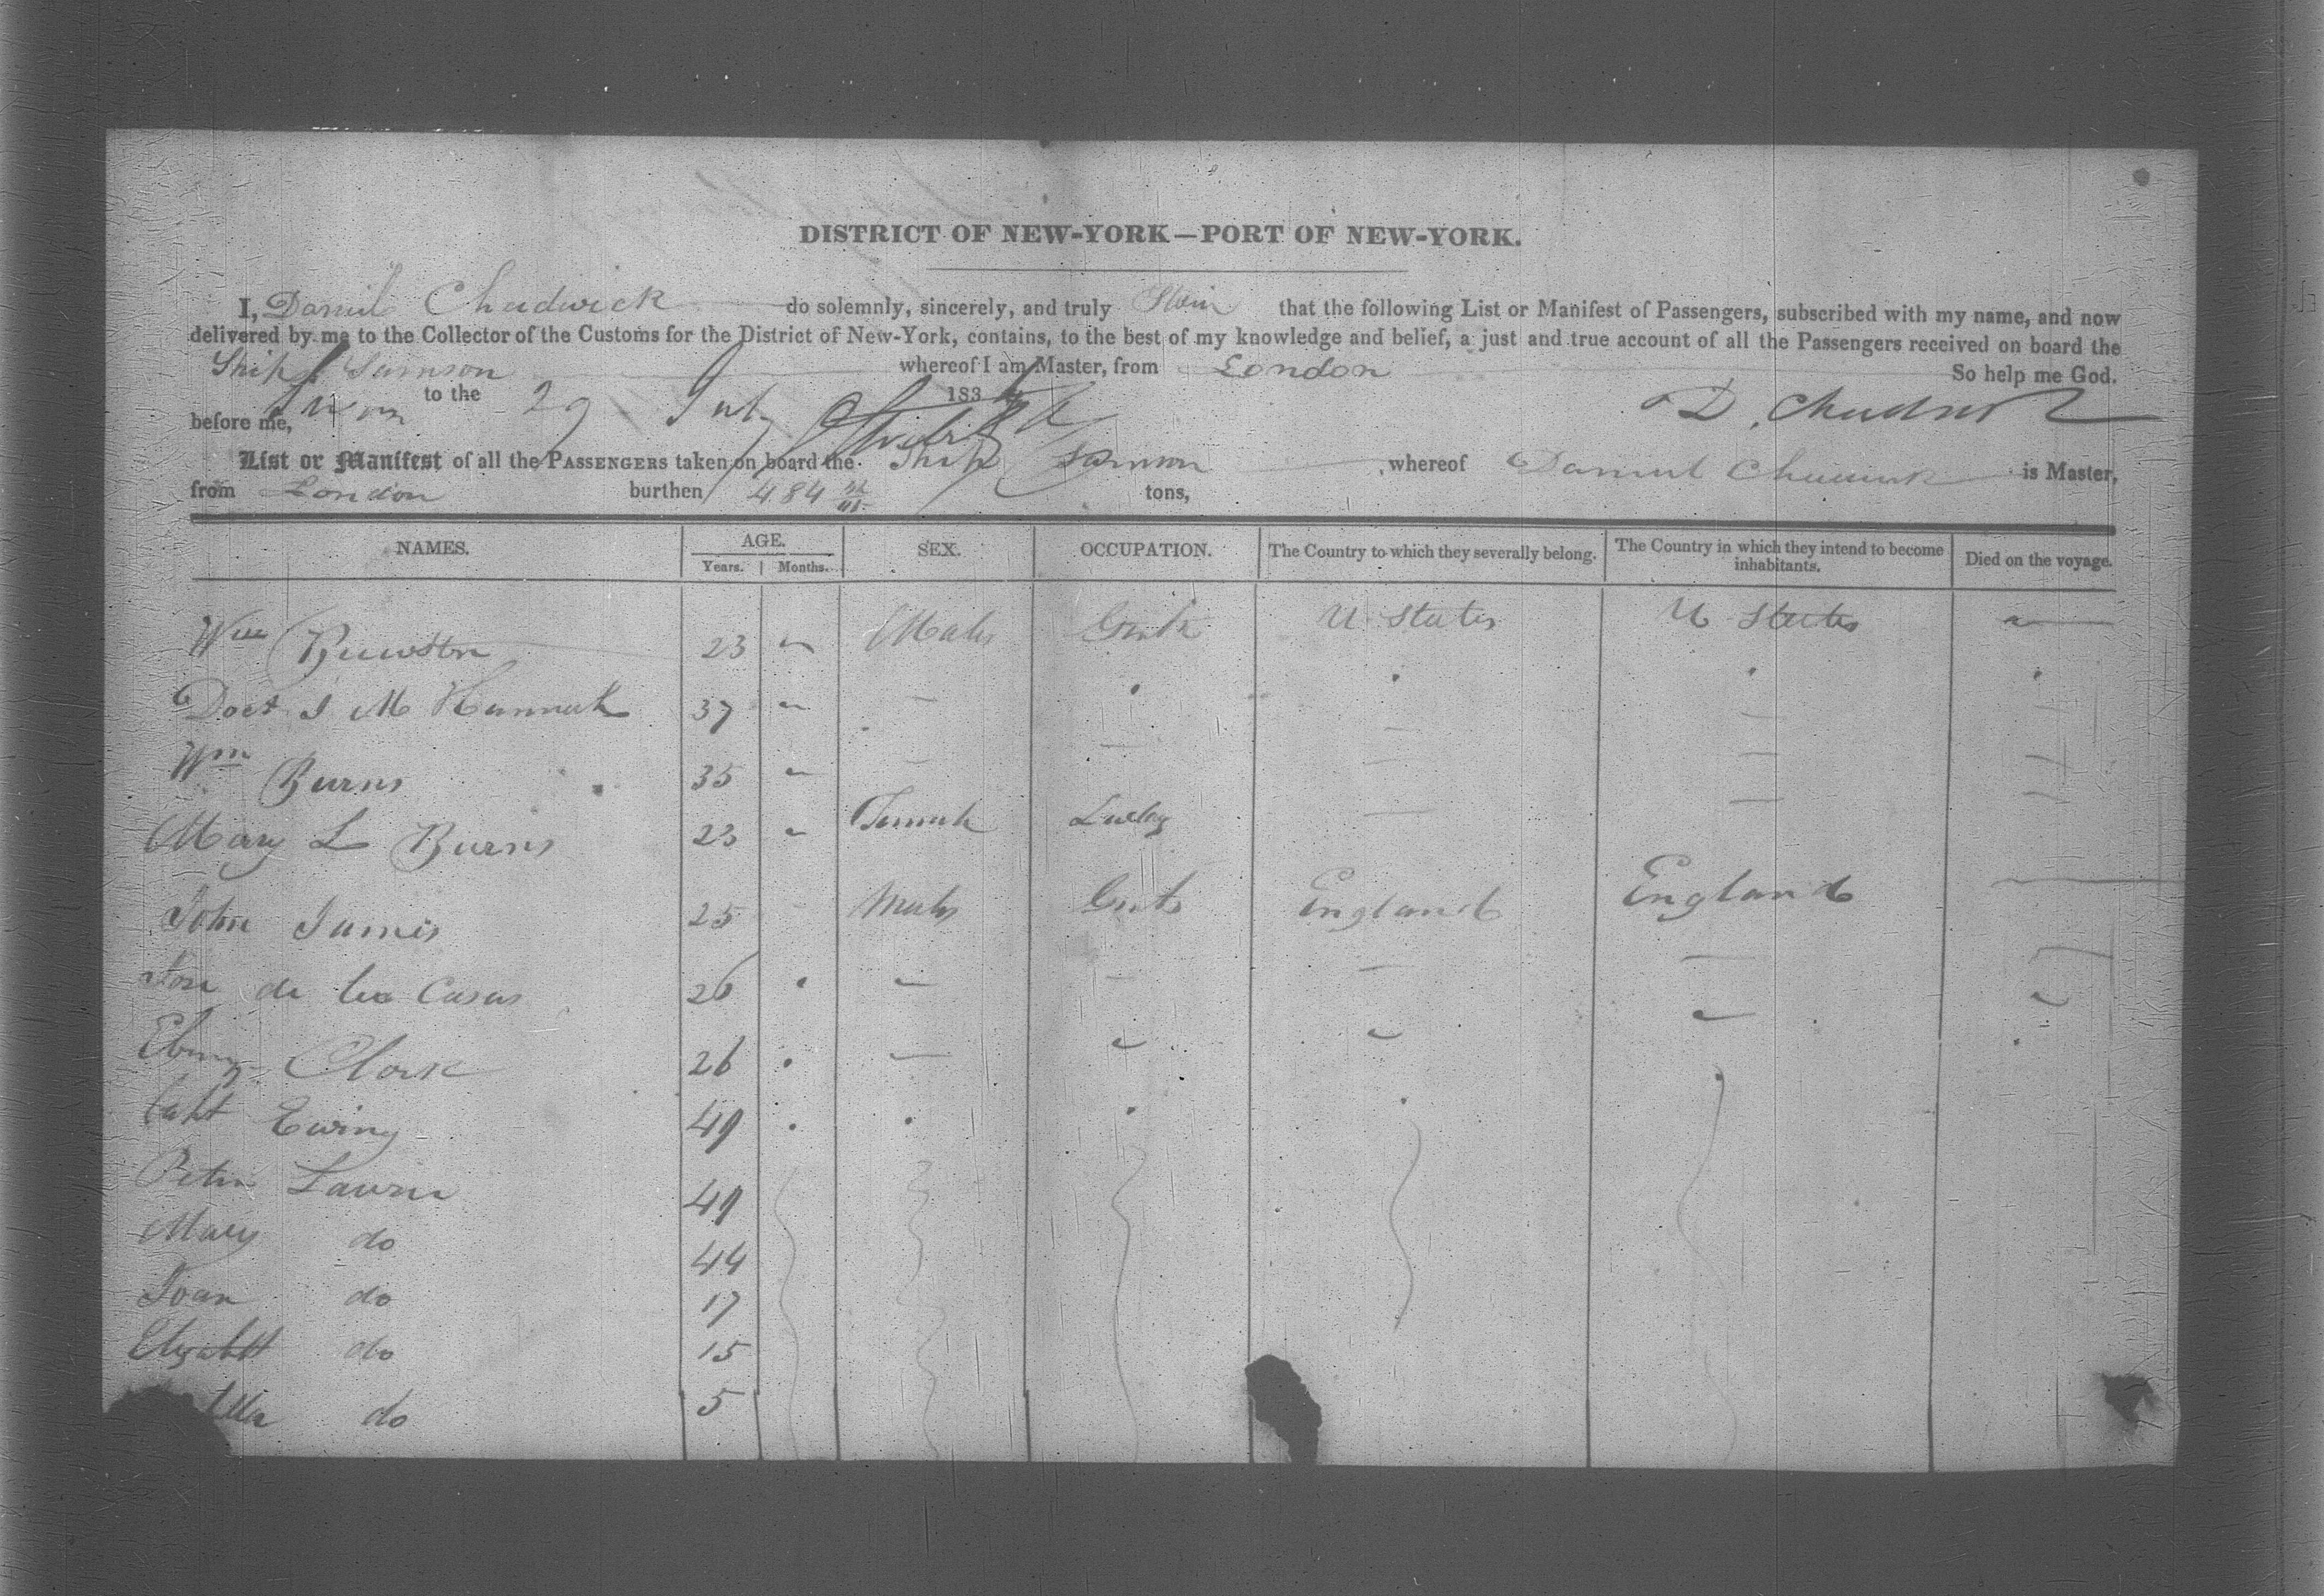 DISTRICT OF NEW-YORK—PORT OF NEW-YORK.
I, Daniel Chadwick do solemnly, sincerely, and truly Swear that the following List or Manifest of Passengers, subscribed with my name, and now
delivered by me to the Collector of the Customs for the District of New-York, contains, to the best of my knowledge and belief, a just and true account of all the Passengers received on board the
Ship Samson whereof I am Master, from London So help me God.
Sworn to the 29 July 183
before me, D. Chadwick
List or Manifest of all the PASSENGERS taken on board the Ship Samson whereof Daniel Chadwick is Master,
from London burthen 484 tons,
NAMES. AGE. SEX. OCCUPATION. The Country to which they severally belong. The Country in which they intend to become inhabitants. Died on the voyage.
Years. Months.
Wm 23 Male Gent U States U States
Doct I M 37
Wm Burns 35
Mary L Burns 23 Female Lady
John James 25 Male Gent England England
Jose de las Casas 26
Eben Clark 26
Capt Ewing 49
Peter Lawrie 49
Mary do 44
Joan do 17
Elizabeth do 15
do 5